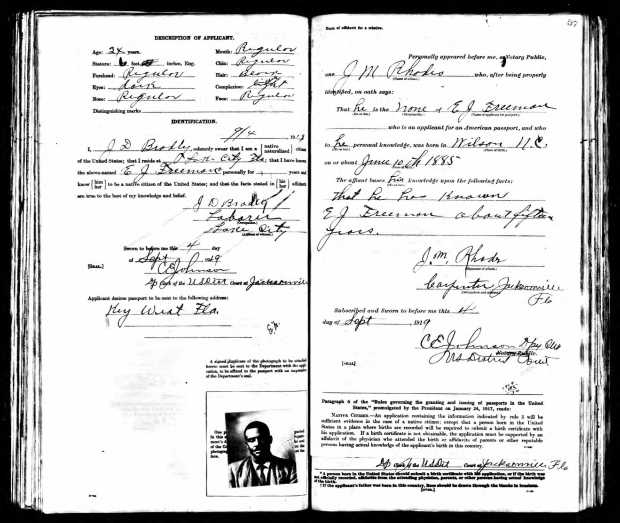 DESCRIPTION OF APPLICANT.
Age: 24 years. Mouth: Regular
Stature: 6 feet inches, Eng. Chin: Regular
Forehead: Regular Hair:
Eyes: Complexion:
Nose: Regular Face: Regular
Distinguishing marks
IDENTIFICATION.
9/4 191
I, J D Bradley, solemnly swear that I am a native naturalized citizen
of the United States; that I reside at City Fla; that I have known
the above-named E J Freeman personally for years and
know him her to be a native citizen of the United States; and that the facts stated in his her affidavit
are true to the best of my knowledge and belief.
J D Bradley
Laborer
Lake City
Sworn to before me this 4 day
of Sept 1919
[SEAL.] C E Johnson
Dpy Clerk of the US Dist Court at Jacksonville
Applicant desires passport to be sent to the following address:
Key West Fla.
A signed duplicate of the photograph to be attached
hereto must be sent to the Department with the application,
to be affixed to the passport with an impression
of the Department's seal.
Form of affidavit for a witness.
Personally appeared before me, a Notary Public,
one J M Rhodes who, after being properly
identified, on oath says:
That he is the none of E J Freeman
who is an applicant for an American passport, and who to
he personal knowledge, was born in Wilson N.C.
on or about June 10th 1885
The affiant bases his knowledge upon the following facts:
that he has known
E J Freeman about fifteen
years.
J. M. Rhodes
Carpenter Jacksonville
Fla
Subscribed and Sworn to before me this 4
day of Sept 1919
C E Johnson Dpy Clk
Notary Public.
US District Court
[SEAL]
Paragraph 6 of the "Rules governing the granting and issuing of passports in the United
States," promulgated by the President on January 24, 1917, reads:
NATIVE CITIZEN.—An application containing the information indicated by rule 3 will be
sufficient evidence in the case of a native citizen; except that a person born in the United
States in a place where births are recorded will be required to submit a birth certificate with
his application. If a birth certificate is not obtainable, the application must be supported by an
affidavit of the physician who attended the birth or affidavits of parents or other reputable
persons having actual knowledge of the applicant's birth in this country.
Dpy Clerk US Dist Court at Jacksonville Fla
* A person born in the United States should submit a birth certificate with his application, or if the birth
was not officially recorded, affidavits from the attending physician, parents, or other persons having actual knowledge
of the birth.
† If the applicant's father was born in this country, lines should be drawn through the blanks in brackets.
[OVER.]